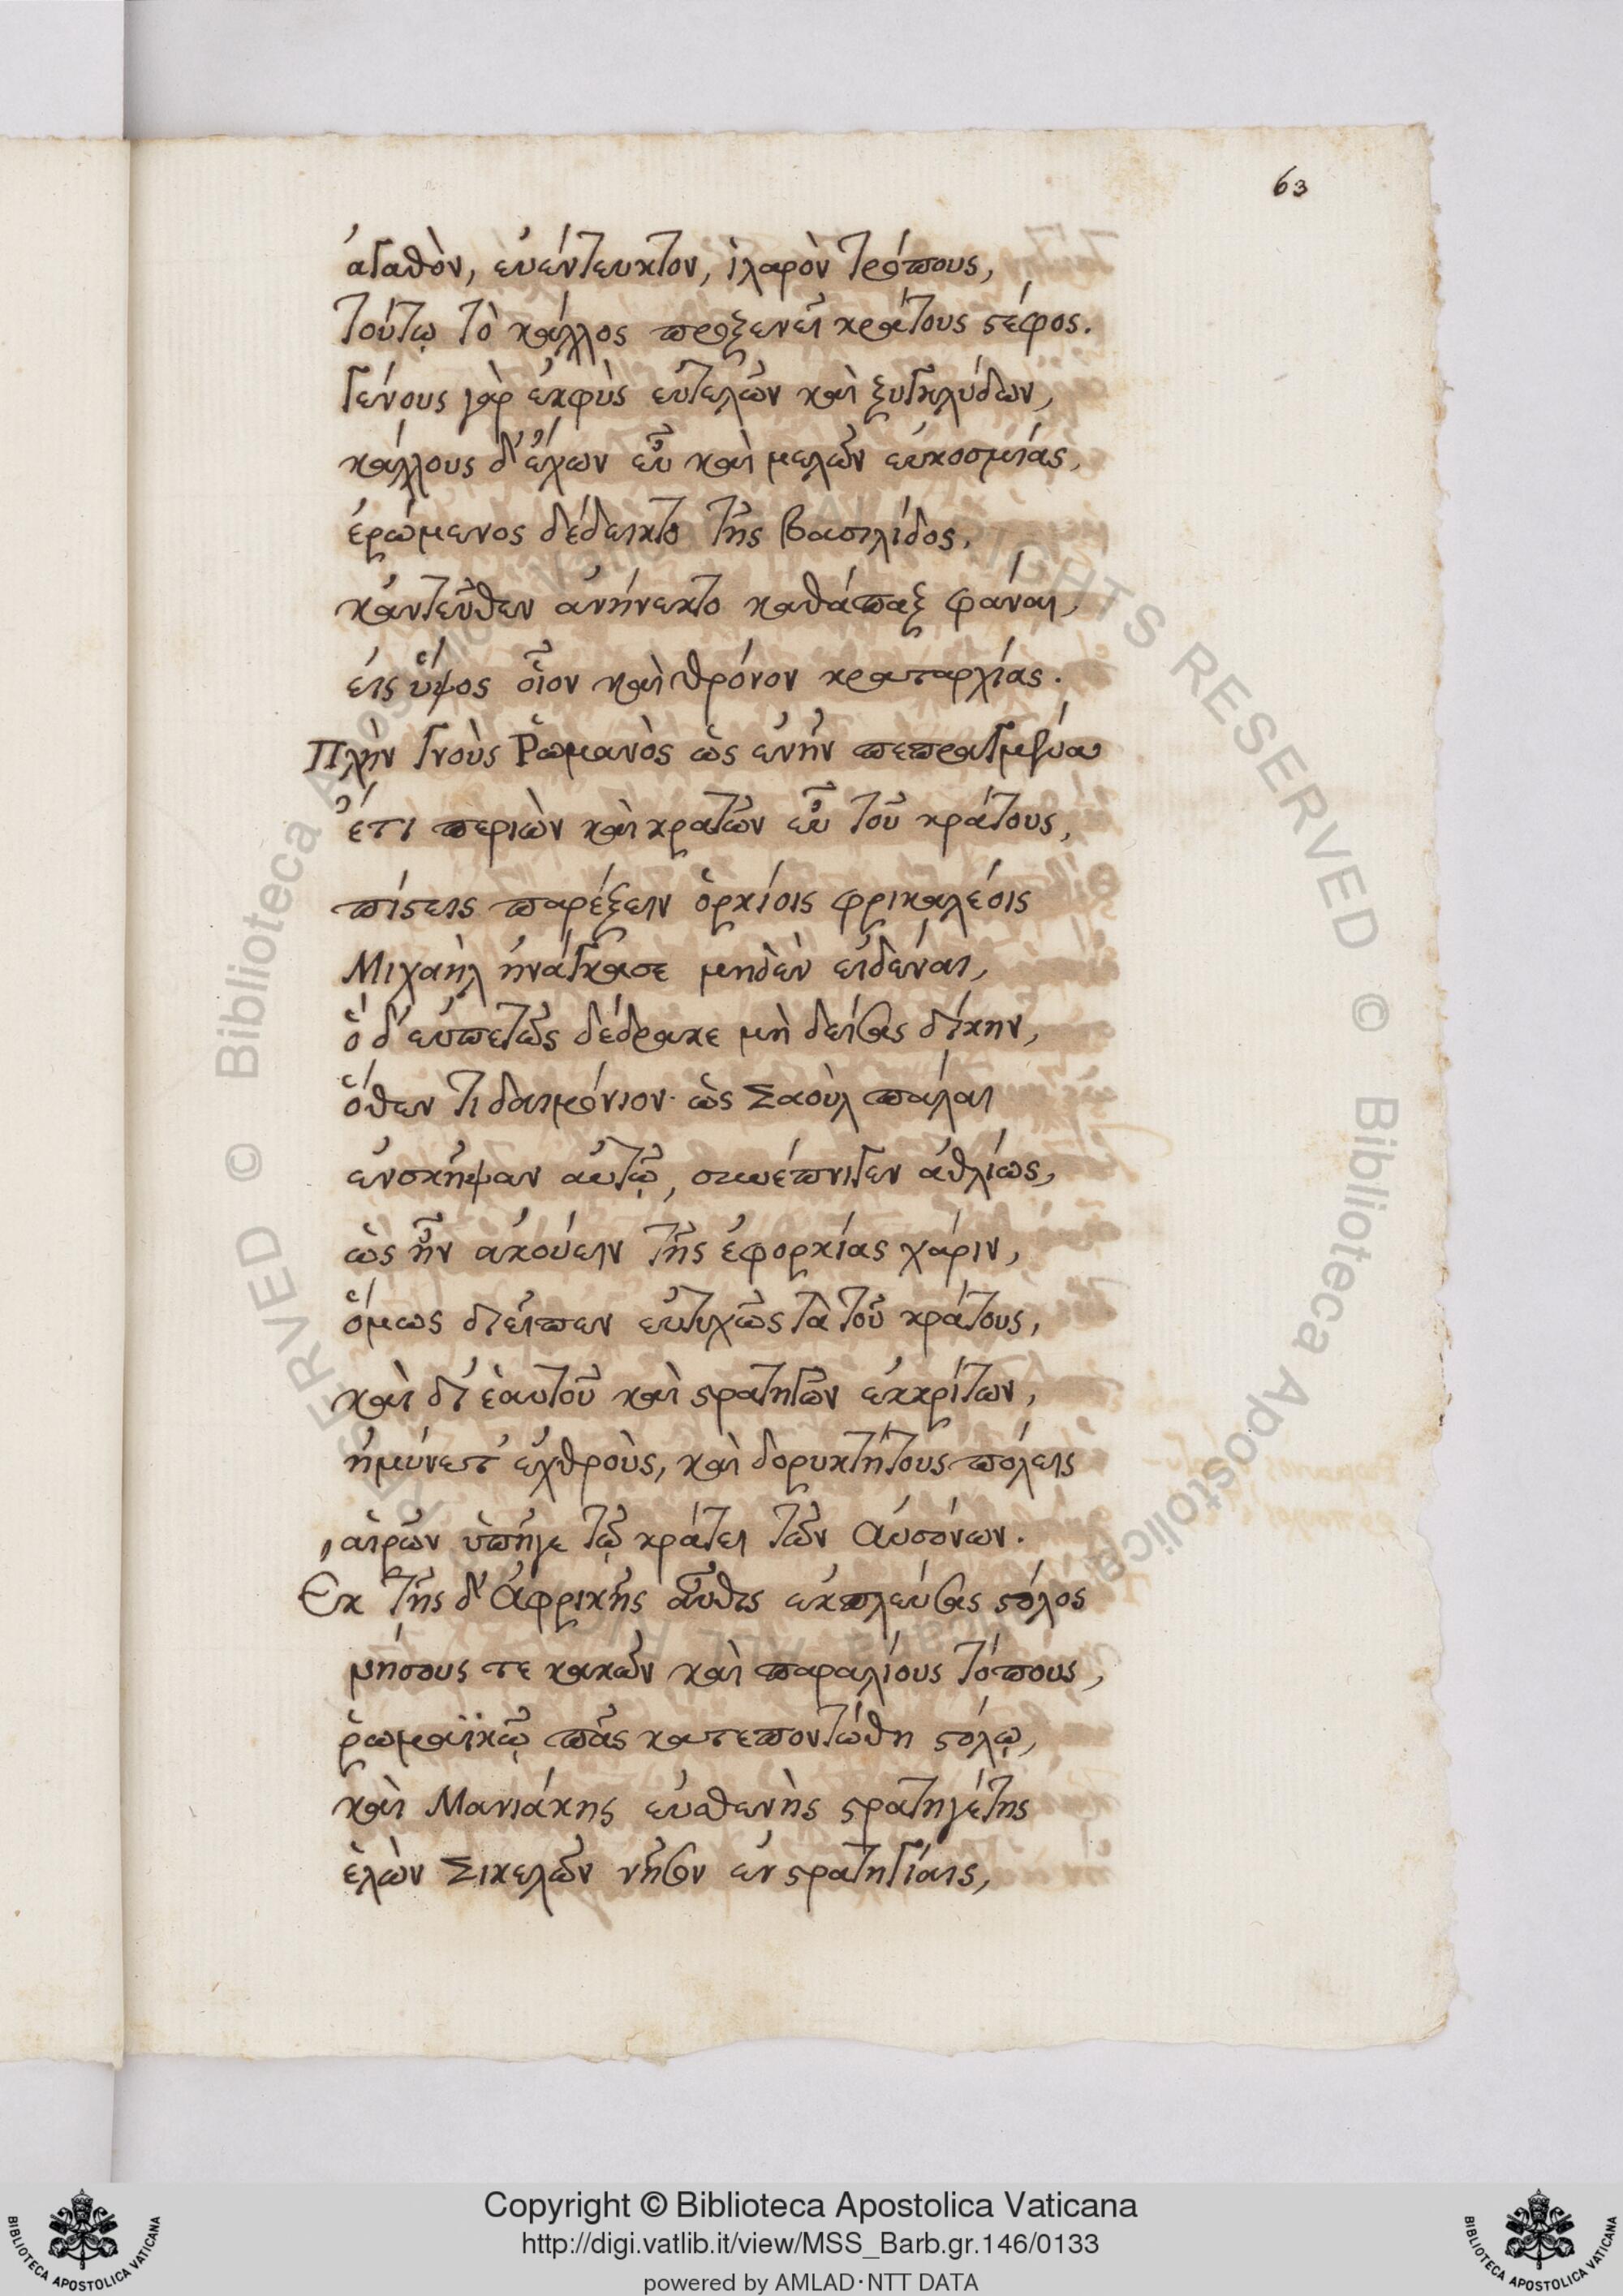 63
ἀγαθὸν, εὐέντευκτον, ἱλαρὸν τρόπους,
τούτῳ τὸ κάλλος προξενεῖ κράτους στέφος.
γένους γὰρ ἐκφὺς εὐτελῶν καὶ ξυγκλύδων,
κάλλους δ' ἔχων εὖ καὶ μελῶν εὐκοσμίας,
ἐρώμενος δέδεικτο τῆς βασιλίδος,
κἀντεῦθεν ἀνήνεκτο καθάπαξ φάναι,
εἰς ὕψος οἷον καὶ θρόνον κραταρχίας.
Πλὴν γνοὺς Ῥωμανὸς ὡς ἐνῆν πεπραγμένα
ἔτι περιὼν καὶ κρατῶν εὖ τοῦ κράτους,
πίστεις παρέξειν ὁρκίοις φρικαλέοις
Μιχαὴλ ἠνάγκασε μηδὲν εἰδέναι,
ὁ δ' εὐπετῶς δέδρακε μὴ δείσας δίκην,
ὅθεν τι δαιμόνιον ὡς Σαοὺλ πάλαι
ἐνσκῆψαν αὐτῷ, συνέπνιγεν ἀθλίως,
ὡς ἦν ἀκούειν τῆς ἐφορκίας χάριν,
ὅμως διεῖπεν εὐτυχῶς τὰ τοῦ κράτους,
καὶ δι' ἑαυτοῦ καὶ στρατηγῶν ἐκκρίτων,
ἠμύνετ' ἐχθροὺς, καὶ δορυκτήτους πόλεις
αἱρῶν ὑπῆγε τῷ κράτει τῶν Αὐσόνων.
Ἐκ τῆς δ' Ἀφρικῆς αὖθις ἐκπλεύσας στόλος
νήσους τε κακῶν καὶ παραλίους τόπους,
ῥωμαϊκῷ πᾶς κατεποντώθη στόλῳ,
καὶ Μανιάκης εὐσθενὴς στρατηγέτης
ἑλὼν Σικελῶν νῆσον ἐν στρατηγίαις,
Copyright © Biblioteca Apostolica Vaticana
http://digi.vatlib.it/view/MSS_Barb.gr.146/0133
powered by AMLAD·NTT DATA